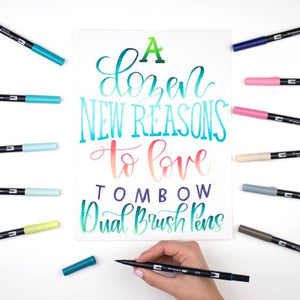 A
dozen
NEW REASONS
to love
TOMBOW
Dual Brush Pens